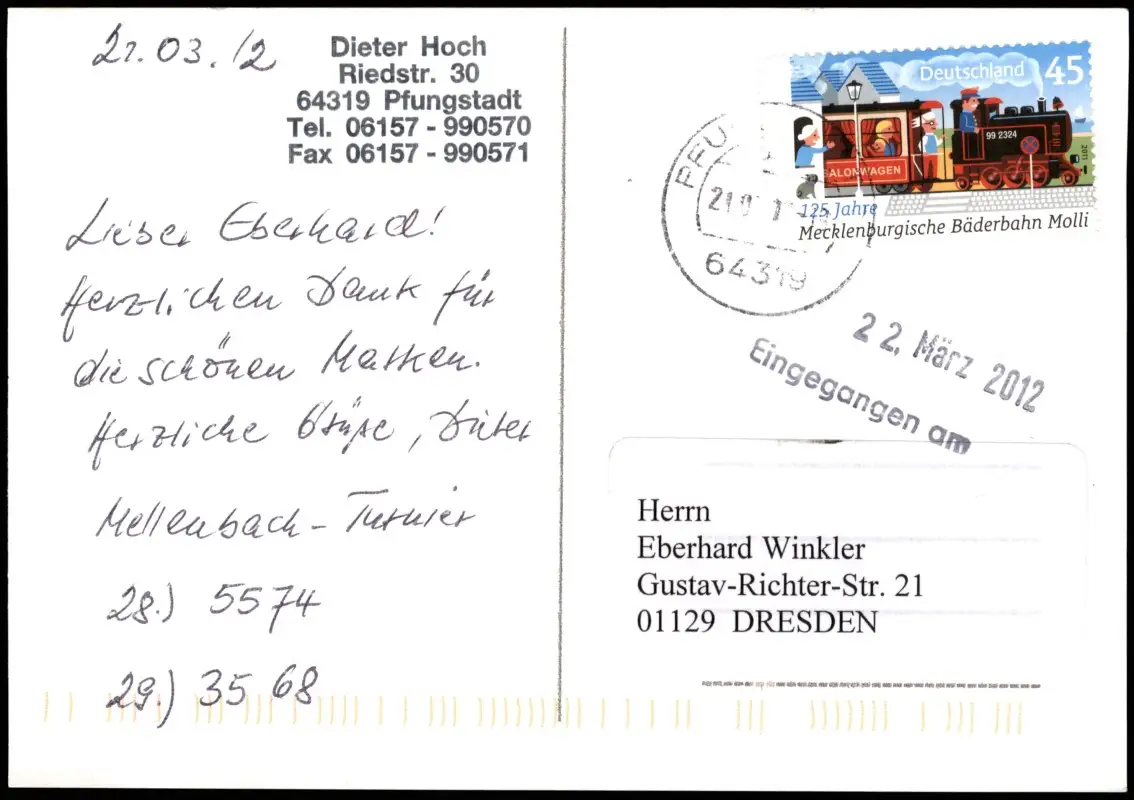 21.03.12
Dieter Hoch
Riedstr. 30
64319 Pfungstadt
Tel. 06157 - 990570
Fax 06157 - 990571
Lieber Eberhard!
Herzlichen Dank für
die schönen Marken.
Herzliche Grüße, Dieter
Mellenbach-Turnier
28.) 5574
29.) 3568
Deutschland 45
99 2324
SALONWAGEN
2011
125 Jahre
Mecklenburgische Bäderbahn Molli
PFU
64319
22. März 2012
Eingegangen am
Herrn
Eberhard Winkler
Gustav-Richter-Str. 21
01129 DRESDEN